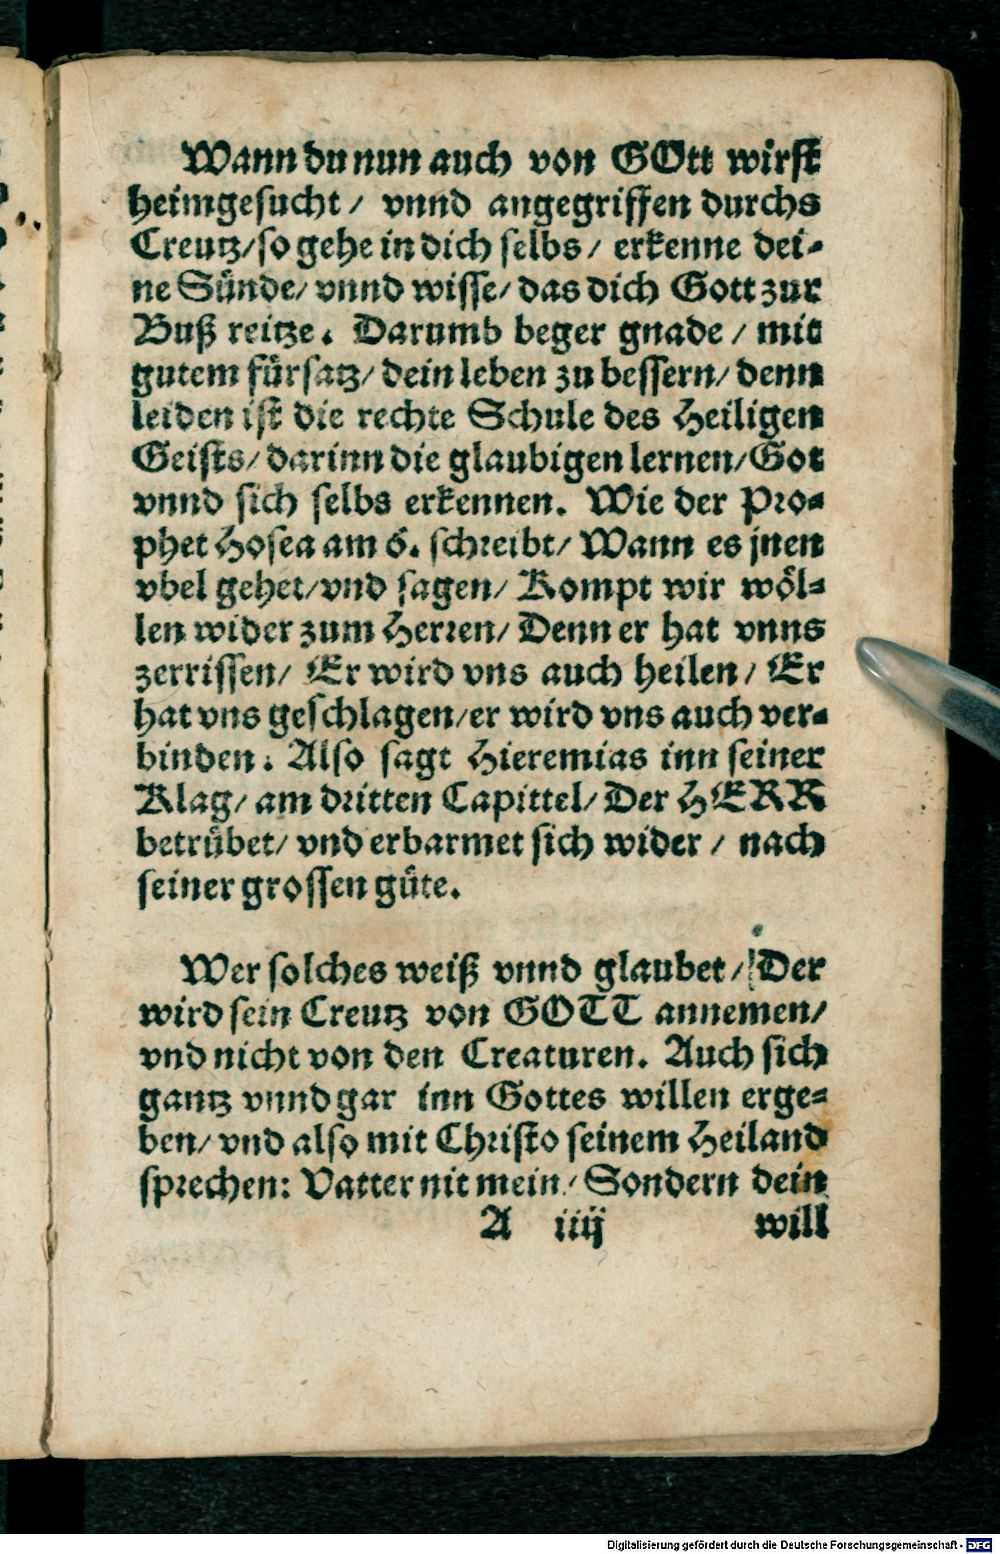 Wann du nun auch von GOtt wirst
heimgesucht / vnnd angegriffen durchs
Creutz/so gehe in dich selbs / erkenne dei-
ne Sünde/ vnnd wisse/ das dich Gott zur
Buß reitze. Darumb beger gnade / mit
gutem fürsatz/ dein leben zu bessern/ denn
leiden ist die rechte Schule des Heiligen
Geists/ darinn die glaubigen lernen/Got
vnnd sich selbs erkennen. Wie der Pro-
phet Hosea am 6. schreibt/ Wann es jnen
vbel gehet/vnd sagen/ Kompt wir wöl-
len wider zum Herren/ Denn er hat vnns
zerrissen/ Er wird vns auch heilen / Er
hat vns geschlagen/er wird vns auch ver-
binden. Also sagt Hieremias inn seiner
Klag/ am dritten Capittel/ Der HERR
betrübet/ vnd erbarmet sich wider / nach
seiner grossen güte.
Wer solches weiß vnnd glaubet / Der
wird sein Creutz von GOTT annemen/
vnd nicht von den Creaturen. Auch sich
gantz vnnd gar inn Gottes willen erge-
ben/ vnd also mit Christo seinem Heiland
sprechen: Vatter nit mein/ Sondern dein
A iiij will
Digitalisierung gefördert durch die Deutsche Forschungsgemeinschaft - DFG